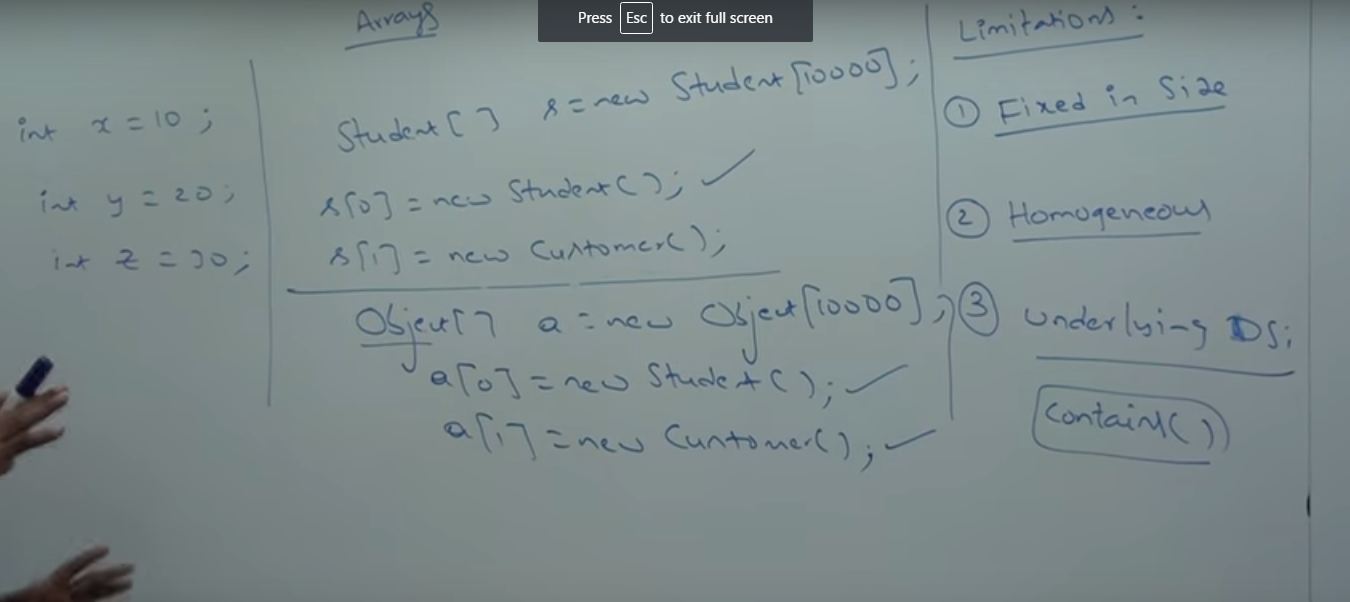 Press Esc to exit full screen
Arrays
int x = 10 ;
int y = 20 ;
int z = 30 ;
Student [ ] s = new Student [10000] ;
s[0] = new Student( ) ; ✓
s[1] = new Customer( ) ;
Object[ ] a = new Object [10000] ;
a[0] = new Student( ) ; ✓
a[1] = new Customer( ) ; ✓
Limitations :
① Fixed in Size
② Homogeneous
③ Underlying DS ;
contains( )